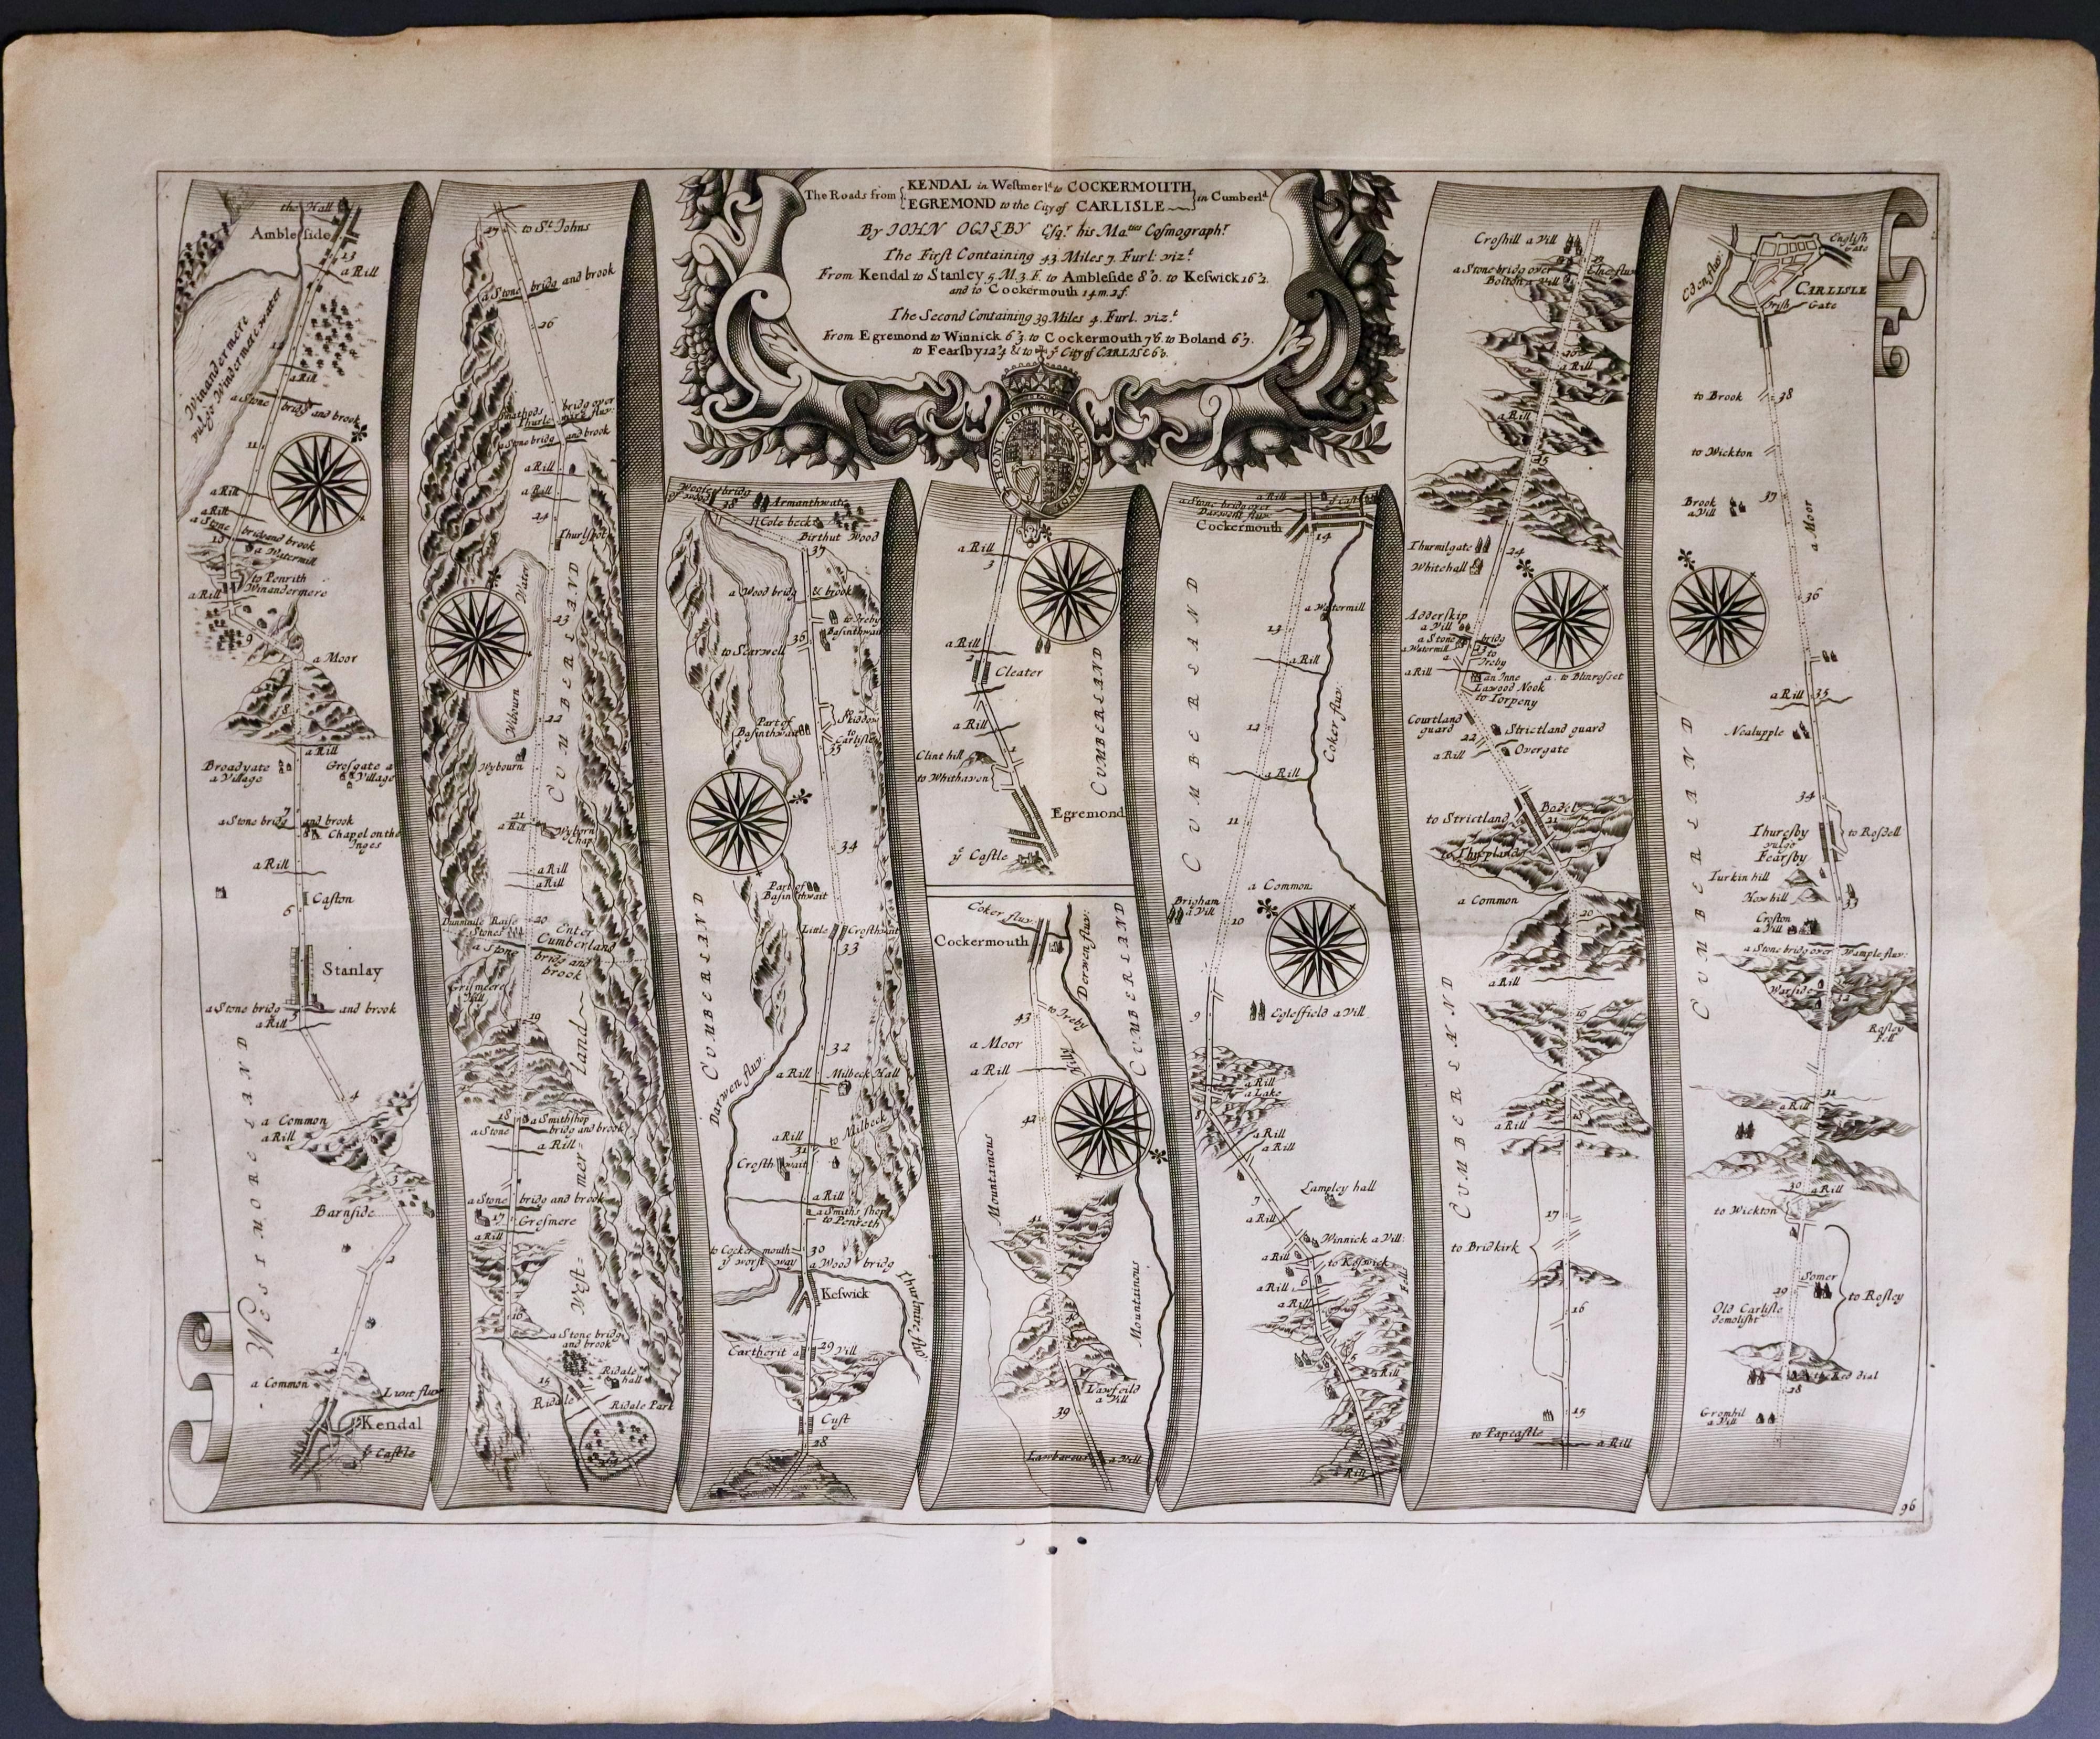 The Roads from { KENDAL in Westmerld to COCKERMOUTH, } in Cumberld
EGREMOND to the City of CARLISLE
By IOHN OGILBY Esqr. his Maties Cosmographr
The First Containing 43 Miles 7. Furl: vizt
From Kendal to Stanley 5. M. 3. F. to Ambleside 8'0. to Keswick 16'2.
and to Cockermouth 14 m. 2 f.
The Second Containing 39 Miles 4. Furl. vizt
From Egremond to Winnick 6'3. to Cockermouth 7'6. to Boland 6'3.
to Fearsby 12'4 & to ye City of CARLISLE 6'3.
HONI SOIT QVI MAL Y PENS
the Hall
Ambleside
13
a Rill
Winandermere
vulgo Windermerewater
12
a Rill
a Stone bridg and brook
11
a Rill
a Rill
a Stone bridg and brook
10
a Watermill
to Penrith
Winandermere
a Rill
9
a Moor
8
a Rill
Broadyate
a Village
Grosgate a
Village
7
a Stone bridg and brook
Chapel on the
Inges
a Rill
Caston
6
Stanlay
a Stone bridg and brook
5
a Rill
WESTMORELAND
4
a Common
a Rill
3
Barnside
2
1
a Common
Kendal
ye Castle
27
to St. Johns
a Stone bridg and brook
26
Smathods
Thurle
bridg over
a Stone bridg and brook
a Rill
a Rill
24
Thurlspot
Water
23
CUMBERLAND
Wibourn
22
Wybourn
21
a Rill
Wyborn
Chap.
a Rill
a Rill
Dunmile Raise
Stones
20
Enter
Cumberland
a Stone bridg and
brook
Grismeere
Hill
19
land
18
a Smithshop
a Stone bridg and brook
a Rill
mer=
a Stone bridg and brook
17
Gresmere
a Rill
West=
16
a Stone bridg
and brook
15
Ridale
hall
Ridale
Ridale Park
38
Armanthwate
Cole beck
Birthut Wood
37
a Wood bridg & brook
to Ireby
Basinthwait
36
to Scarwell
Part of
Basinthwait
to
Skiddow
to
Carlisle
35
34
Part of
Basinthwait
Little Crosthwait
33
CUMBERLAND
32
Darwen fluv:
a Rill
Milbeck Hall
a Rill
to Milbeck
31
Crosthwait
a Rill
a Smiths shop
to Penreth
to Cockermouth
ye worst way
30
a Wood bridg
Keswick
Thurlmere fluv:
Cartherit a Vill
29
Cust
28
a Rill
3
a Rill
2
Cleater
a Rill
Clint hill
to Whithaven
1
CUMBERLAND
Egremond
ye Castle
Coker fluv:
Cockermouth
Derwen fluv:
CUMBERLAND
43
to Ireby
a Moor
a Rill
42
Mountainous
41
40
Mountainous
Lawfeild
a Vill
39
a Vill
a Rill
a Stone bridg over
Darwent fluv:
ye Castle
Cockermouth
14
a Watermill
13
CUMBERLAND
a Rill
Coker fluv:
12
a Rill
11
a Common
Brigham
a Vill
10
Eglesfield a Vill
9
a Rill
a Lake
8
a Rill
a Rill
Lampley hall
7
a Rill
Winnick a Vill:
a Rill
to Keswick
a Rill
6
a Rill
5
a Rill
a Rill
Croshill a Vill
a Stone bridg over Elne fluv:
Bolton a Vill
26
a Rill
a Rill
25
Thurmilgate
Whitehall
24
Adderskip
a Vill
a Stone bridg
a Watermill
23
to
Ireby
a Rill
an Inne
a. to Blinrosset
Lawood Nook
to Torpeny
Courtland
guard
22
Strictland guard
a Rill
Overgate
to Strictland
21
to Threpland
a Common
20
a Rill
CUMBERLAND
19
18
a Rill
17
to Bridkirk
16
15
to Papcastle
a Rill
Eden fluv:
English
Gate
CARLISLE
Irish Gate
to Brook
38
to Wickton
37
Brook
a Vill
a Moor
36
a Rill
35
Nealupple
CUMBERLAND
34
Thuresby
vulgo
Fearsby
to Rosdell
Turkin hill
How hill
33
Croston
a Vill
a Stone bridg over Wample fluv:
Warside
32
Rosley
Fell
31
a Rill
30
a Rill
to Wickton
Somer
29
to Rosley
Old Carlisle
demolisht
the Red dial
28
Gromhil
a Vill
96